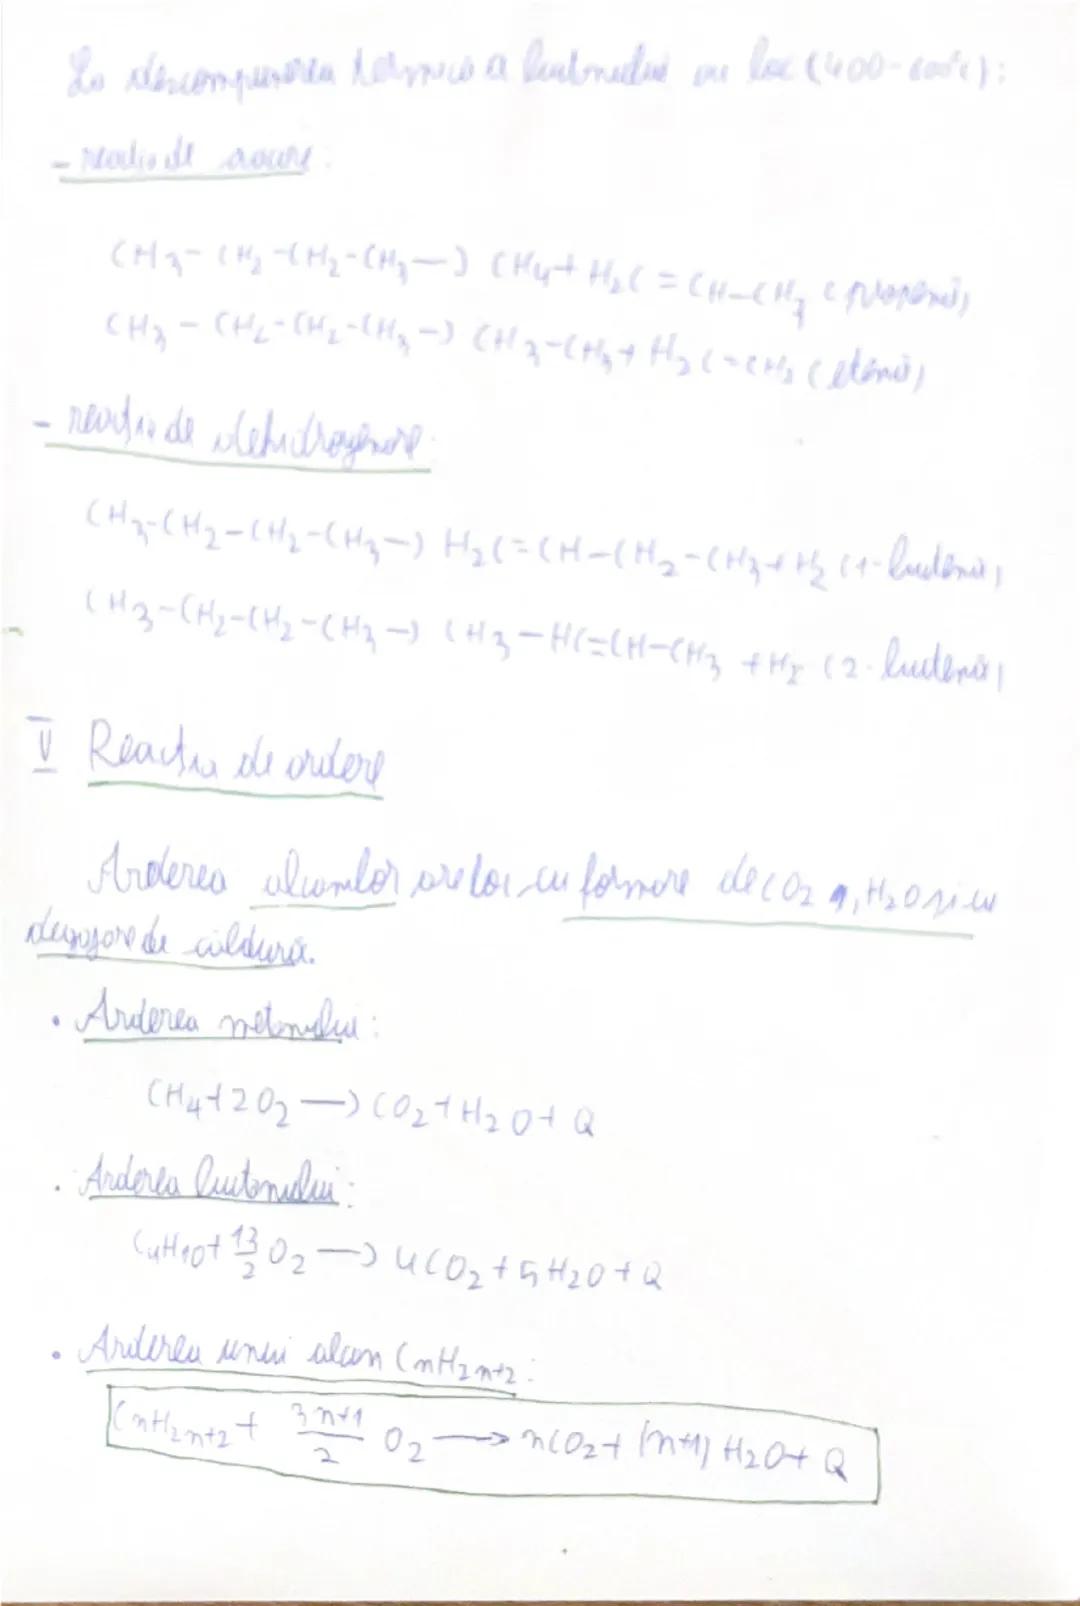 La descompunerea termică a butanului au loc (400-600°C):
- reacția de rupere:
CH3-CH2-CH2-CH3 → CH4 + H2C=CH-CH3 (propenă)
CH3-CH2-CH2-CH3 → CH3-CH3 + H2C=CH2 (etenă)
- reacția de dehidrogenare:
CH3-CH2-CH2-CH3 → H2C=CH-CH2-CH3 + H2 (1-butenă)
CH3-CH2-CH2-CH3 → CH3-HC=CH-CH3 + H2 (2-butenă)
V Reacția de ardere
Arderea alcanilor are loc cu formare de CO2 și H2O și cu
degajare de căldură.
• Arderea metanului:
CH4 + 2O2 → CO2 + H2O + Q
• Arderea butanului:
C4H10 + 13/2 O2 → 4CO2 + 5H2O + Q
• Arderea unui alcan CnH2n+2:
CnH2n+2 + 3n+1/2 O2 → nCO2 + (n+1) H2O + Q